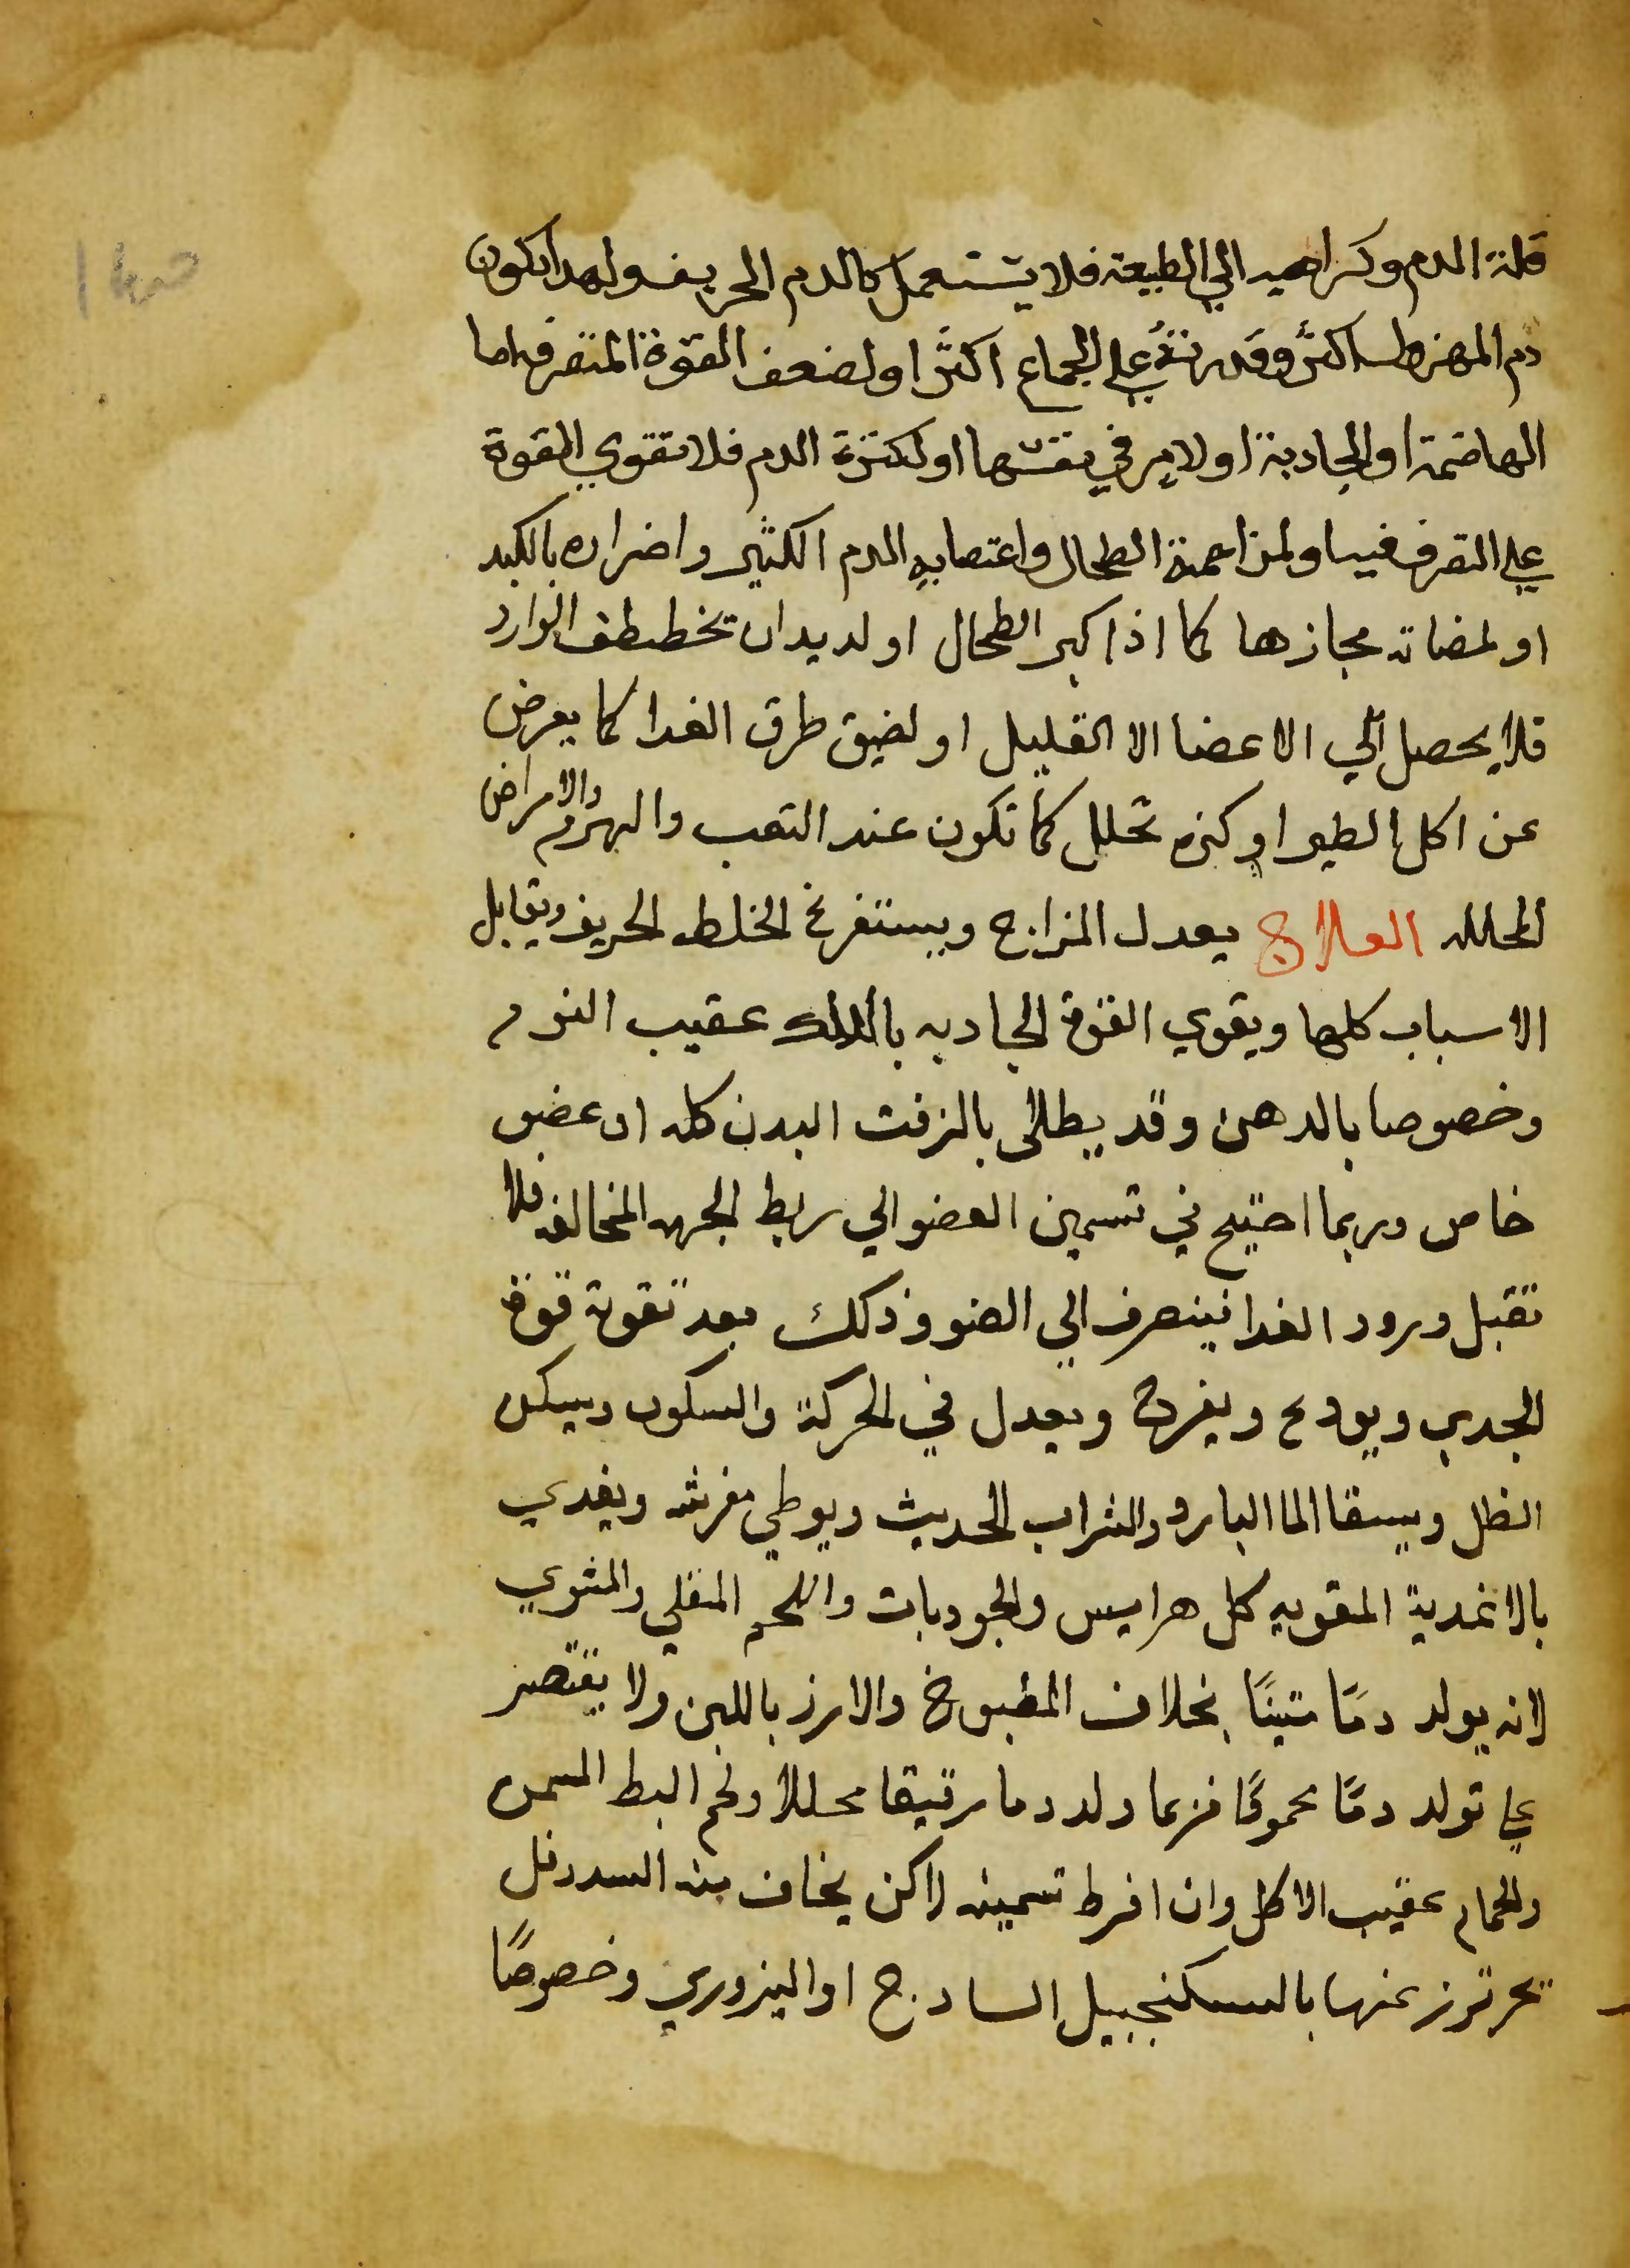 قلة الدم وكراهيه الي الطبيعة فلا يستعمل كالدم الحريف ولهدا يكون
دم المهزول اكثر وقدرته علي الجماع اكثر او لضعف القوة المتصرفه اما
الهاضمة او الجادبة او لامر في نفسها او لكثرة الدم فلا تقوي القوة
علي التصرف فيه او لمزاحمة الطحال واغتصابه الدم الكثير واضراره بالكبد
او لمضادته مجازها كما اذا كبر الطحال او لديدان تخطف الوارد
فلا يحصل الي الاعضا الا القليل او لضيق طرق الغدا كما يعرض
عن اكل الطين او كثره تحلل كما تكون عند التعب والهم والامراض
المحلله العلاج يعدل المزاج ويستفرغ الخلط الحريف ويقابل
الاسباب كلها ويقوي القوة الجادبه بالدلك عقيب النوم
وخصوصا بالدهن وقد يطلى بالزفت البدن كله او عضو
خاص وربما احتيج في تسمين العضو الي ربط الجهه المخالفه فلا
تقبل ورود الغدا فينصرف الي العضو وذلك بعد تقوية قوة
الجدب ويودع ويفرح ويعدل في الحركة والسكون ويسكن
الظل ويسقا الما البارد والشراب الحديث ويوطي مفرشه ويغدي
بالاغدية المقويه كل هرايس والجودبات واللحم المقلي والمشوي
لانه يولد دمًا متينًا بخلاف المطبوخ والارز باللبن ولا يقتصر
علي تولد دمًا محمودًا فربما ولد دما رقيقا محللا ولحم البط المسمن
والحمام عقيب الاكل وان افرط تسمينه لاكن يخاف منه السدد فل
تحرترز عنها بالسكنجبيل السادج او البزوري وخصوصًا